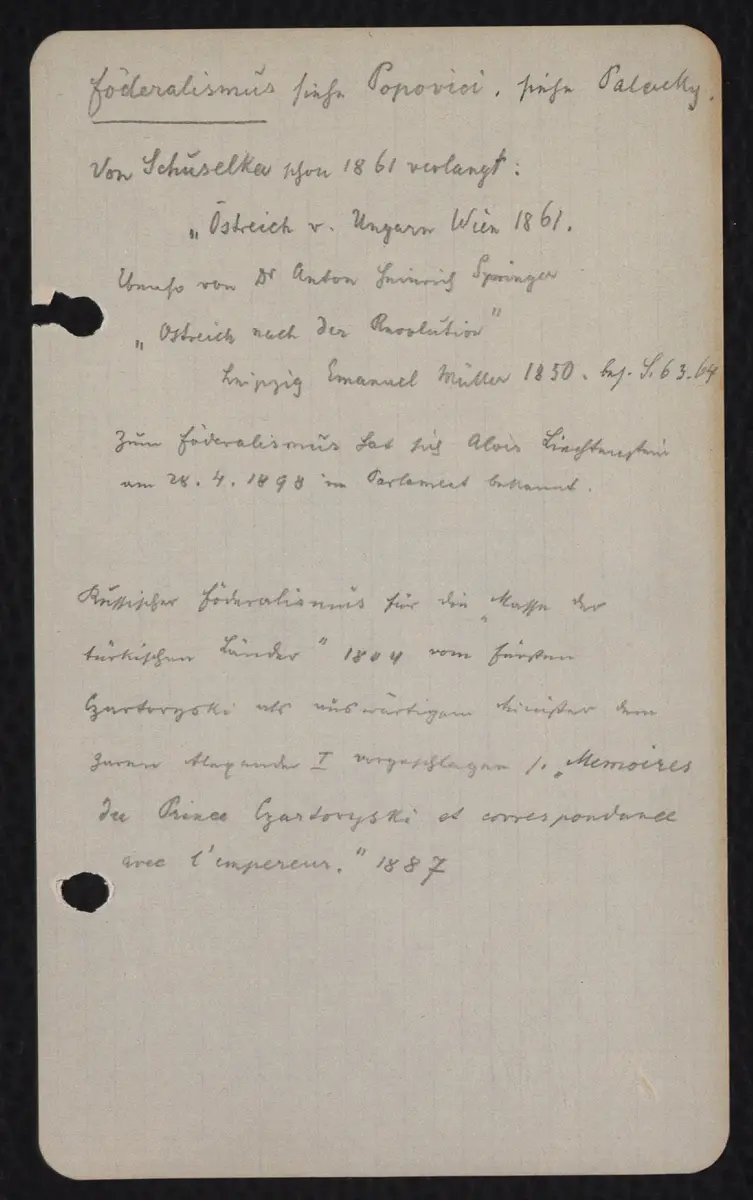 Föderalismus siehe Popovici. siehe Palacky.
Von Schuselka schon 1861 verlangt:
„Östreich v. Ungarn Wien 1861.
Ebenso von Dr Anton Heinrich Springer
„Östreich nach der Revolution"
Leipzig Emanuel Müller 1850. bes. S. 63.64
Zum Föderalismus hat sich Alois Liechtenstein
am 28. 4. 1898 im Parlament bekannt.
Russischer Föderalismus für die „Masse der
türkischen Länder" 1804 vom Fürsten
Czartoryski als auswärtigem Minister dem
Zaren Alexander I vorgeschlagen s. „Memoires
du Prince Czartoryski et correspondance
avec l'empereur." 1887